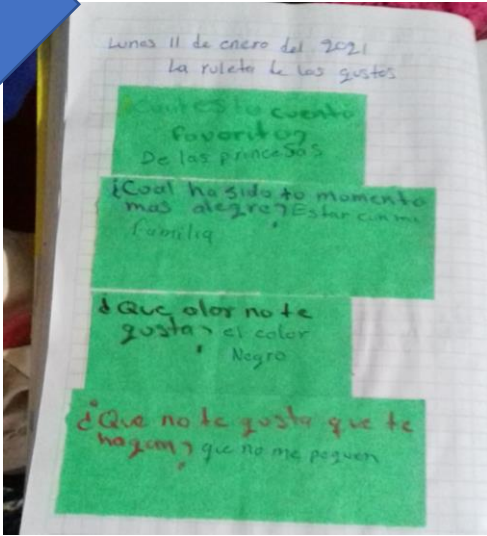 Lunes 11 de enero del 2021
La ruleta de los gustos
cuento
favorito?
De las princesas
¿Cual ha sido tu momento
mas alegre? Estar con mi
familia
¿Que olor no te
gusta? el color
Negro
¿Que no te gusta que te
hagan? que no me peguen